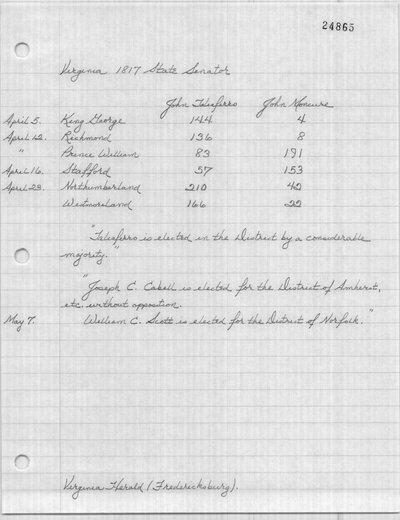 24865
Virginia 1817 State Senator
John Taliaferro John Moncure
April 5. King George 144 4
April 12. Richmond 136 8
" Prince William 83 191
April 16. Stafford 57 153
April 23. Northumberland 210 42
Westmoreland 166 22
"Taliaferro is elected in the District by a considerable
majority."
"Joseph C. Cabell is elected for the District of Amherst,
etc. without opposition.
May 7. William C. Scott is elected for the District of Norfolk."
Virginia Herald (Fredericksburg).